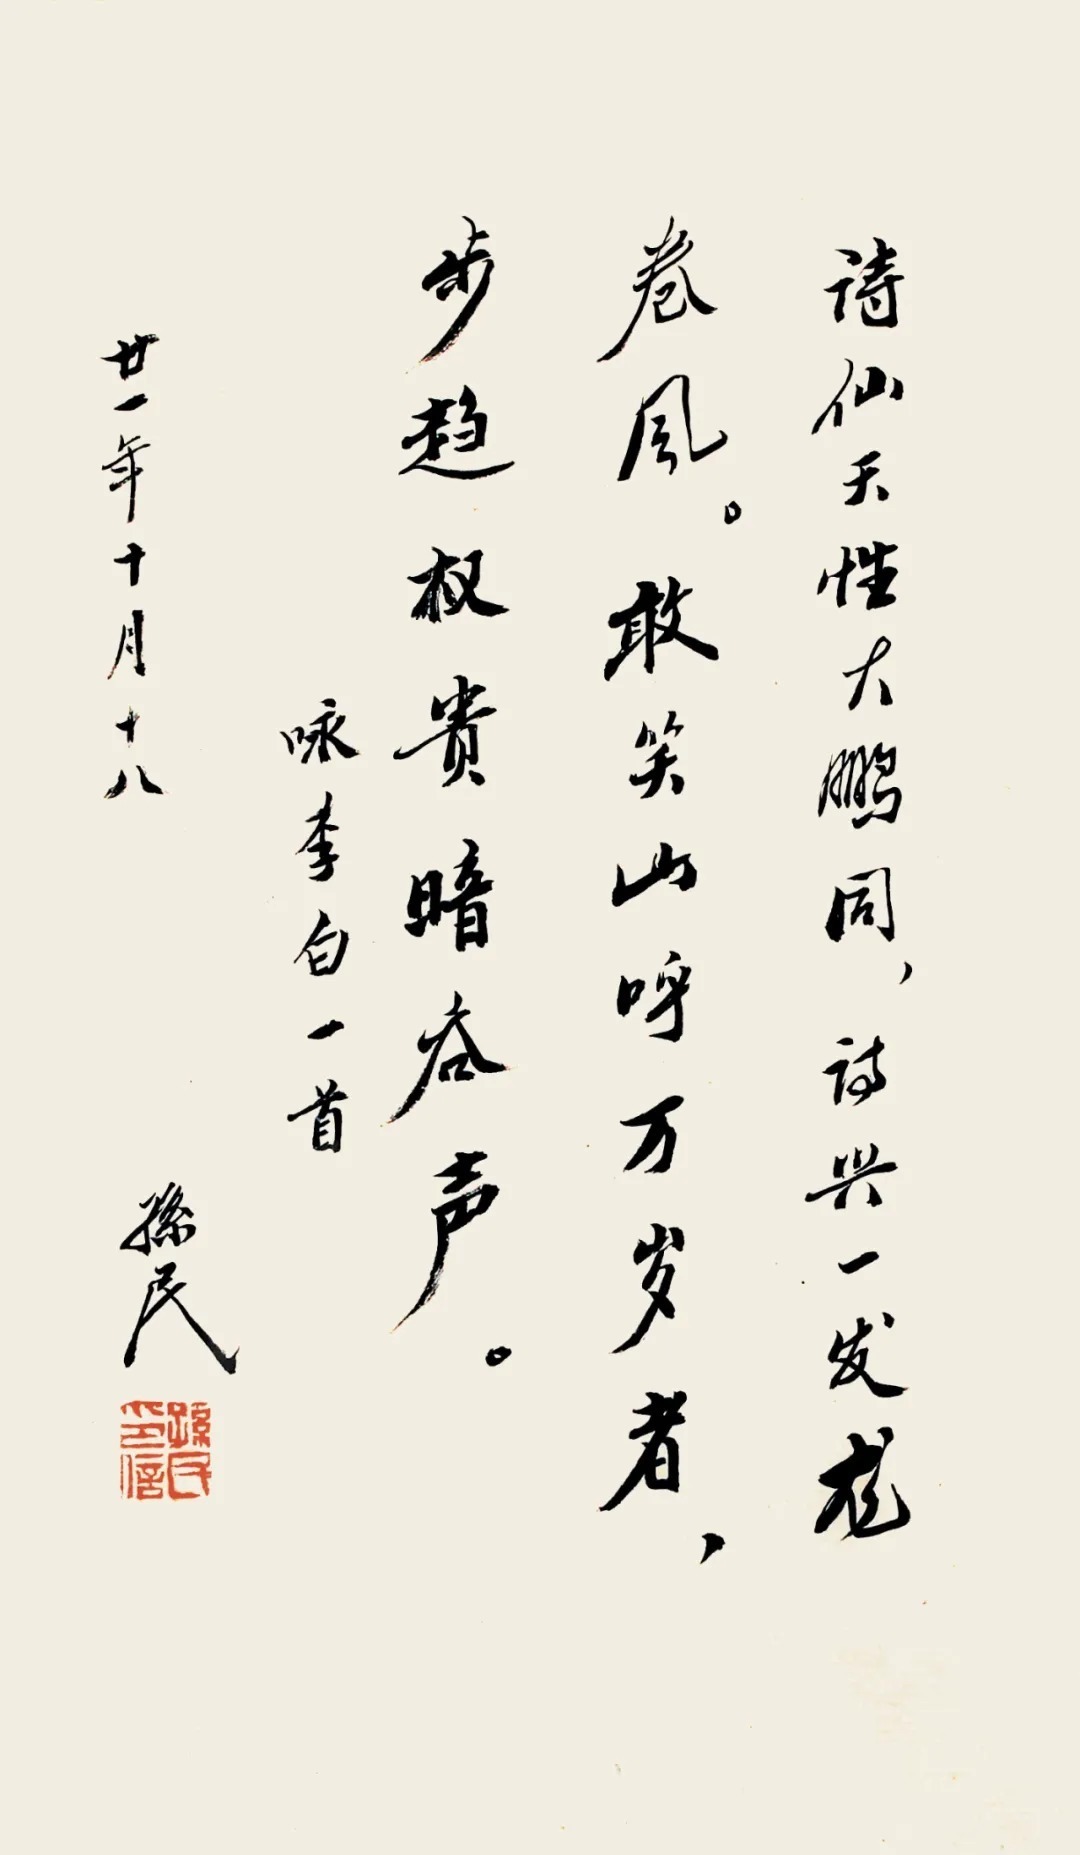 诗仙天性大鹏同，诗兴一发龙
卷风。敢笑山呼万岁者，
步趋权贵暗吞声。
咏李白一首
廿一年十月十八
孙民
孫民
印信